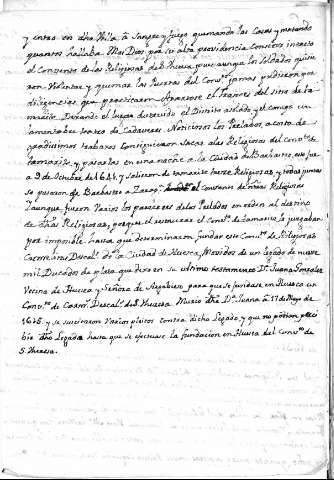 y entro en dha Villa à Sangre y fuego quemando las Casas y matando
quantos hallaba. Mas Dios por su alta providencia conservó intacto
el Convento de las Religiosas de S. Theresa pues aunque los Soldados quisie-
ron Violentar y quemar las Puertas del Convto. jamas pudieron por
diligencias que practicaron. Apartose el Frances del sitio de ta-
marite, Durando el fuego destruido el Distrito asolado y el campo un
lamentable teatro de Cadaveres. Noticiosos los Prelados, a costa de
grandisimos trabaxos Consiguieron sacar alas Religiosas del Convto. de
tamarite, y pasarlas en una noche a la Ciudad de Barbastro, esto fue
a 9 de Octubre del 641. y salieron de tamarite trece Religiosas, y todas juntas
se pasaron de Barbastro a Zarag. al Convento de nras Religiosas
Aunque fueron Varios los pareceres delos Prelados en orden al destino
de dhas Religiosas, porque el restaurar el Convto. de tamarite le juzgaban
por imposible, hasta que determinaron fundar este Convto. de Religiosas
Carmelitas Descalzas de la Ciudad de Huesca, Movidos de un legado de nueve
mil Ducados de plata que dexó en su ultimo testamento Da. Juana Gonzalez
Vecina de Huesca y Señora de para que se fundase en Huesca un
Convto. de Carm. Descalzas de S. Theresa. Murio dha Da. Juana à 17 de Mayo de
1645. y se suscitaron Varios pleitos contra dicho Legado, y que no podian perci-
bir dho Legado hasta que se efectuase la fundacion en Huesca del Convto. de
S. Theresa.